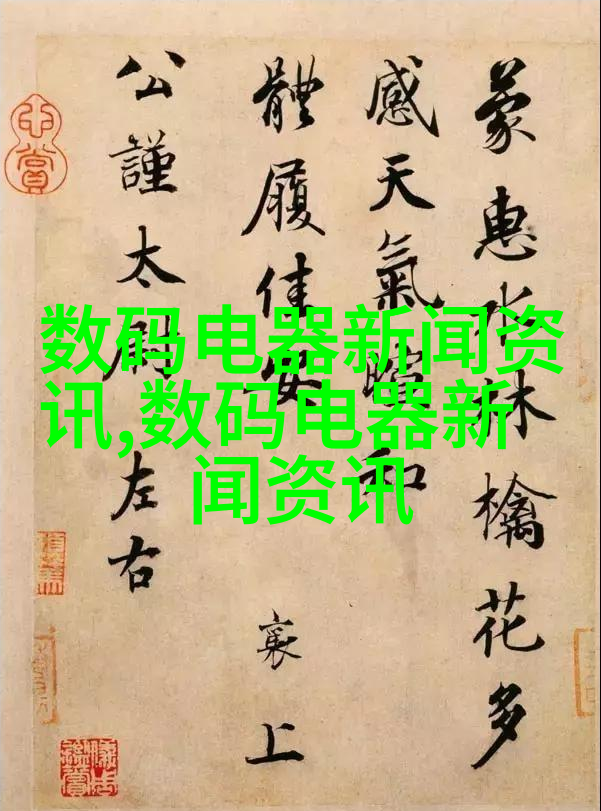 蒙惠水林檎花多
感天氣暄和
體履佳安
襄上
公謹太尉左右
数码电器新闻资
讯,数码电器新
闻资讯